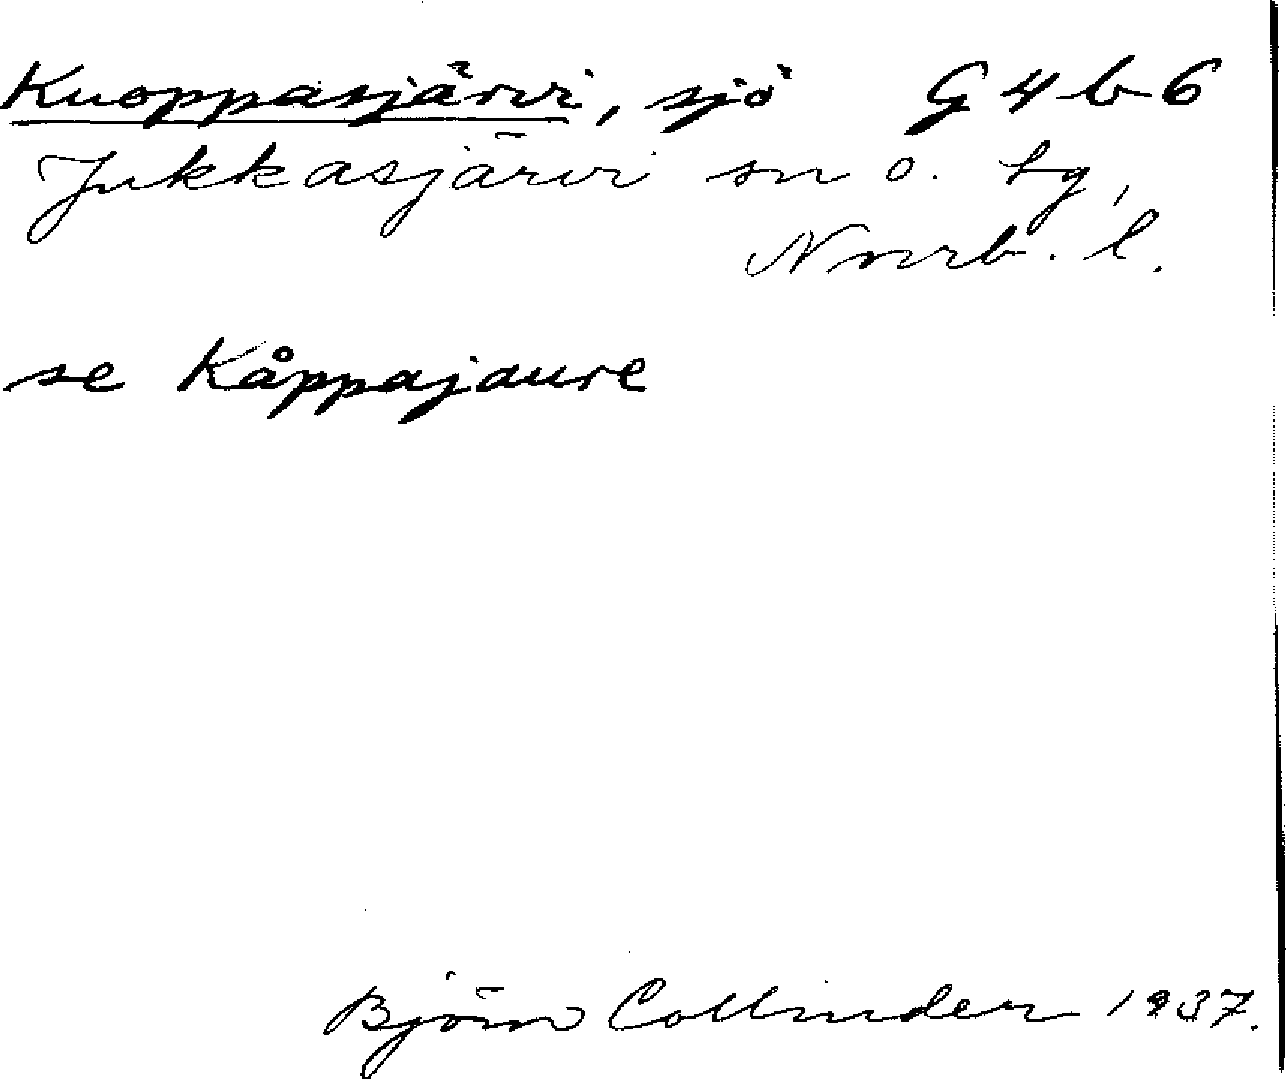 Kuoppasjärvi, sjö G 4 b 6
Jukkasjärvi sn o. tg,
Norrb. l.
se Kåppajaure
Björn Collinder 1937.